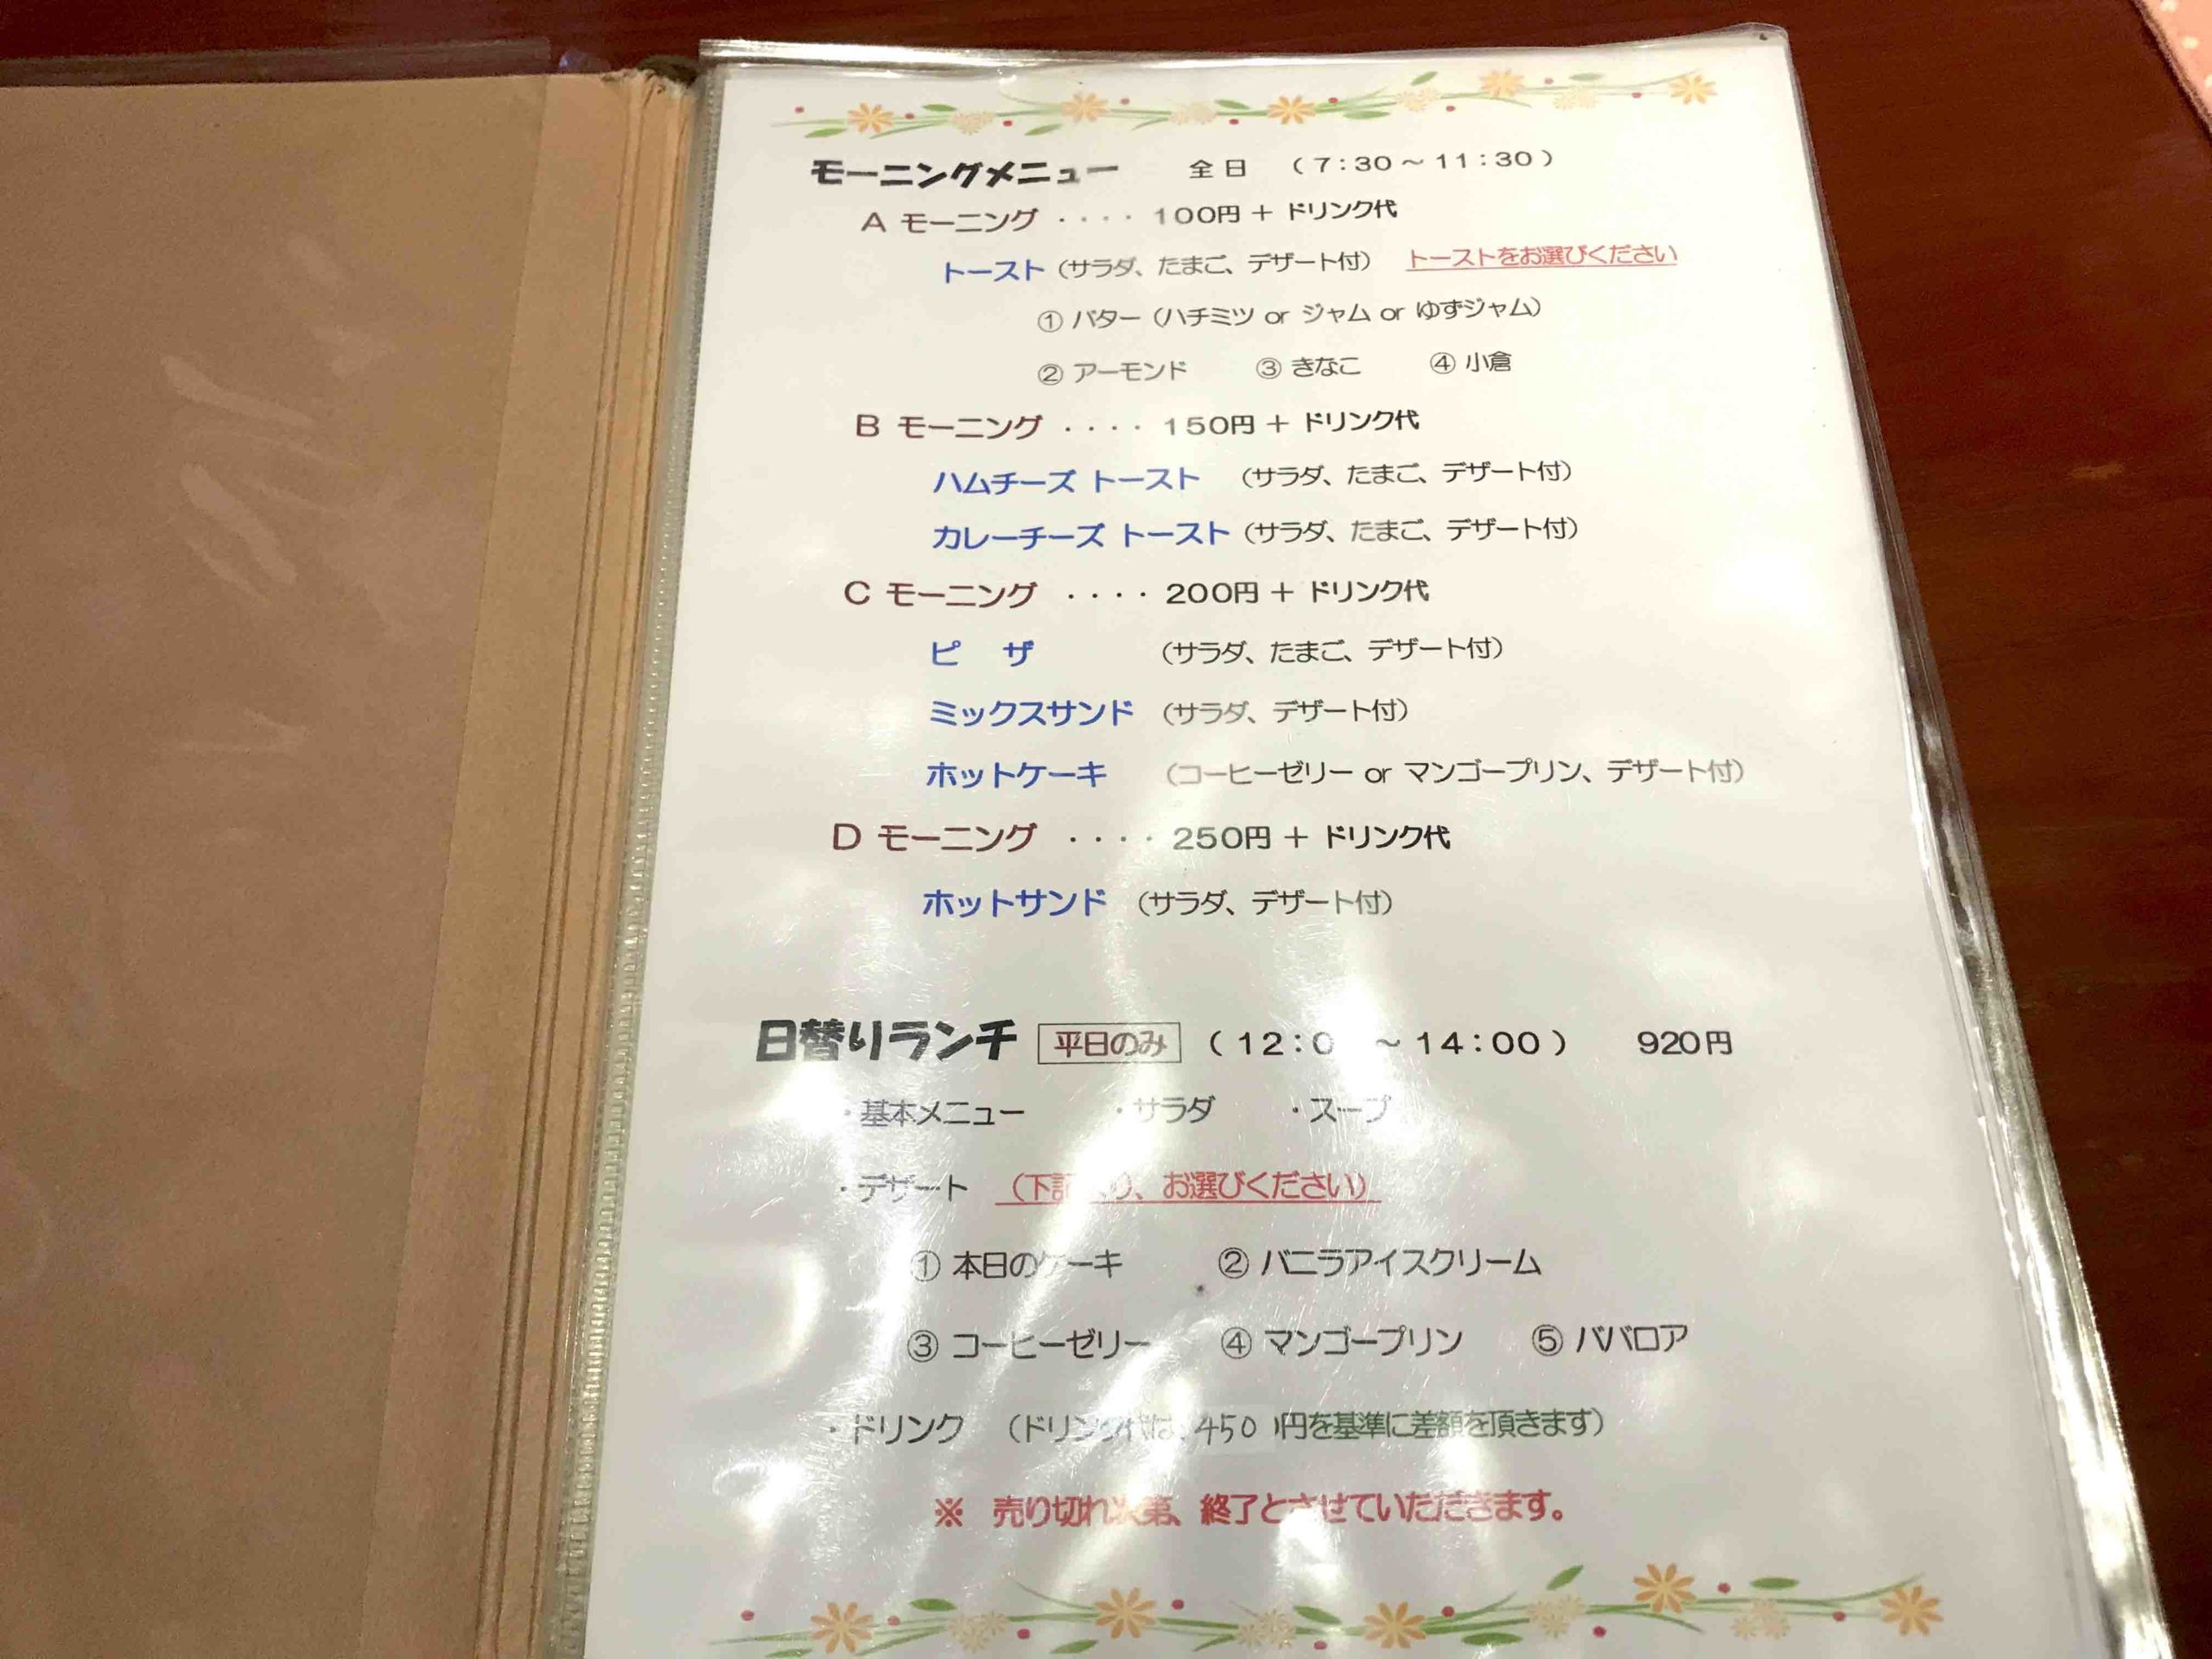 モーニングメニュー 全日 (7:30～11:30)
A モーニング ････ 100円 + ドリンク代
トースト (サラダ、たまご、デザート付) トーストをお選びください
① バター (ハチミツ or ジャム or ゆずジャム)
② アーモンド ③ きなこ ④ 小倉
B モーニング ････ 150円 + ドリンク代
ハムチーズ トースト (サラダ、たまご、デザート付)
カレーチーズ トースト (サラダ、たまご、デザート付)
C モーニング ････ 200円 + ドリンク代
ピ ザ (サラダ、たまご、デザート付)
ミックスサンド (サラダ、デザート付)
ホットケーキ (コーヒーゼリー or マンゴープリン、デザート付)
D モーニング ････ 250円 + ドリンク代
ホットサンド (サラダ、デザート付)
日替りランチ 平日のみ (12:0 ～14:00) 920円
・基本メニュー ・サラダ ・スープ
・デザート (下記より、お選びください)
① 本日のケーキ ② バニラアイスクリーム
③ コーヒーゼリー ④ マンゴープリン ⑤ ババロア
・ドリンク (ドリンク代は、450円を基準に差額を頂きます)
※ 売り切れ次第、終了とさせていただきます。